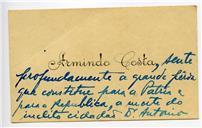 Armindo Costa, sente
profundamente a grande perda
que constitue para a Patria e
para a Republica, a morte do
inclito cidadão Dr. Antonio